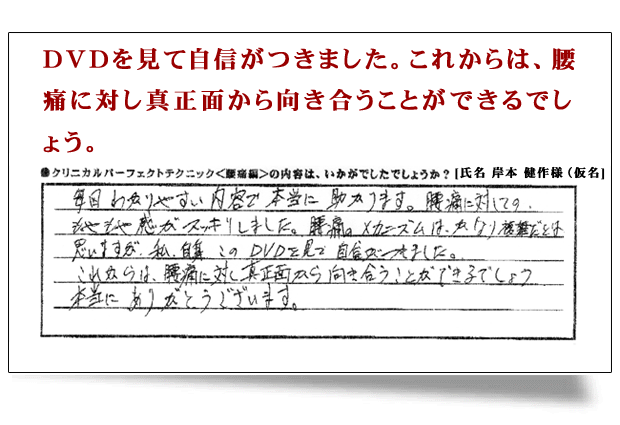 DVDを見て自信がつきました。これからは、腰
痛に対し真正面から向き合うことができるでし
ょう。
●クリニカルパーフェクトテクニック<腰痛編>の内容は、いかがでしたでしょうか？ [氏名 岸本 健作様（仮名]
毎回わかりやすい内容で本当に助かります。腰痛に対しての
モヤモヤ感がスッキリしました。腰痛のメカニズムは、かなり複雑だとは
思いますが、私、自身このDVDを見て自信がつきました。
これからは、腰痛に対し真正面から向き合うことができるでしょう
本当にありがとうございます。